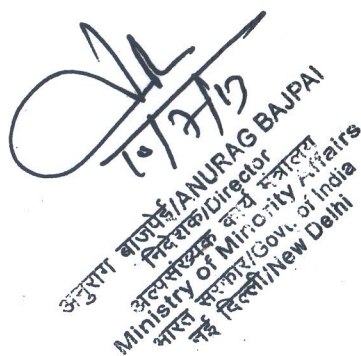 10/7/17
अनुराग बाजपेई/ANURAG BAJPAI
निदेशक/Director
अल्पसंख्यक कार्य मंत्रालय
Ministry of Minority Affairs
भारत सरकार/Govt. of India
नई दिल्ली/New Delhi